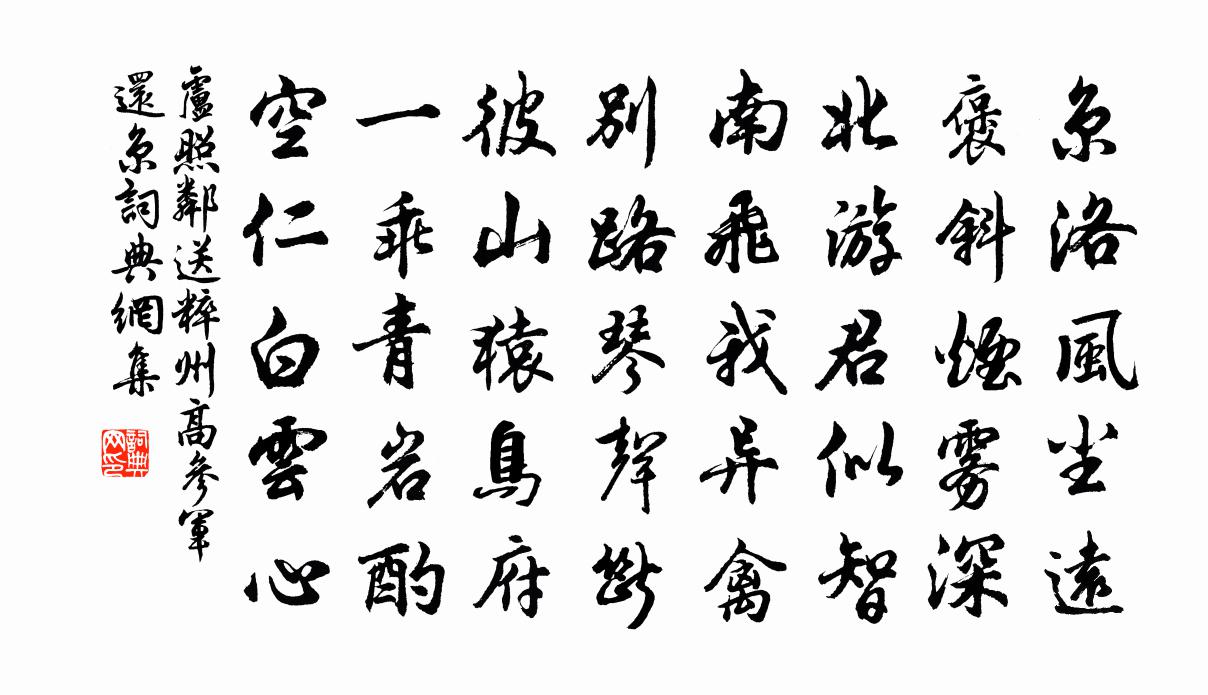 京洛風尘遠
褒斜煙雾深
北游君似智
南飛我异禽
别路琴聲斷
彼山猿鳥府
一乖青岩酌
空仁白雲心
盧照鄰送粹州高參軍
還京詞典網集
詞典
网印